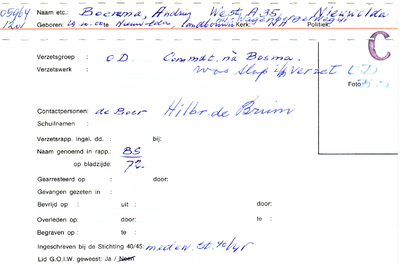 05964 Naam etc.: Boerma, Andries West A 35, Nieuwolda
Geboren: te Nieuwolda, landbouwer Kerk: NH Politiek:
C
Verzetsgroep : O.D. Commdt. nà Bosma.
Verzetswerk : was slap in verzet
Foto
Contactpersonen: de Boer Hilbr. de Bruin
Schuilnaam :
Verzetsrapp. ingel. dd. : bij:
Naam genoemd in rapp.: BS
op bladzijde: 72.
Gearresteerd op : door:
Gevangen gezeten in :
Bevrijd op : uit: door:
Overleden op : door: te :
Begraven op : te :
Ingeschreven bij de Stichting 40/45: medew. St. 40/45
Lid G.O.I.W. geweest: Ja / Neen